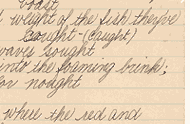 coast
weight of the fish they've
Sought - (Caught)
waves sought
into the foaming brink;
for nought
where the red and